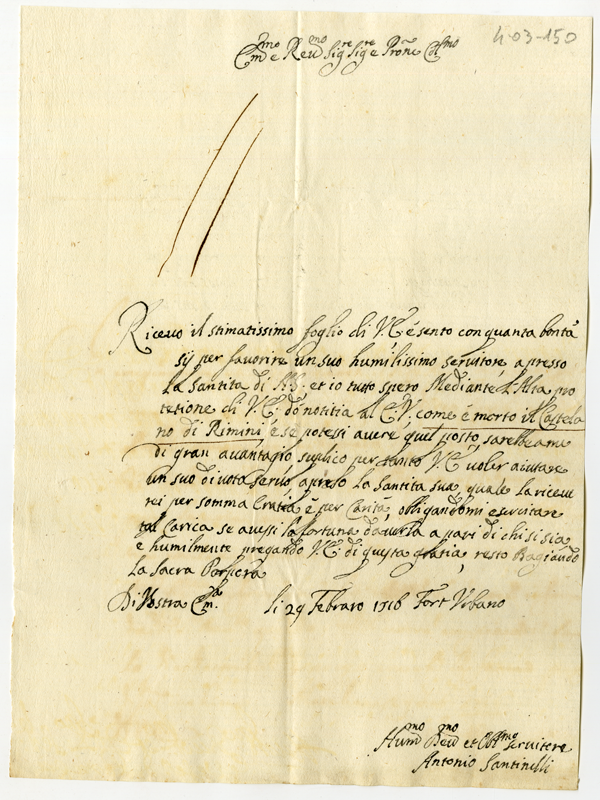 4-03-150
Em.mo e Rev.mo Sig.re Sig.re e Pron Col.mo
Ricevo il stimatissimo foglio di V.E. e sento con quanta bontà
sij per favorire un suo humilissimo servitore apresso
la Santita di N.S. et io tutto spero Mediante l'Alta pro
tetione di V.E. dò notitia al E.V. come è morto il Castela
no di Rimini e se potessi avere quel posto, sarebe a me
di gran avantagio suplico per tanto V.E. voler aiutare
un suo divoto servo apreso la Santita sua, quale la riceve
rei per somma Gratia e per Carità, obligandomi esercitare
tal Carica se avessi la fortuna d'averla a pari di chi si sia
e humilmente pregando V.E. di questa gratia, resto Bagiando
la Sacra Porpora
Di Vostra Em.za li 29 Febraro 1716 Fort Urbano
Hum.mo Dev.mo et Obl.mo Servitore
Antonio Santinelli